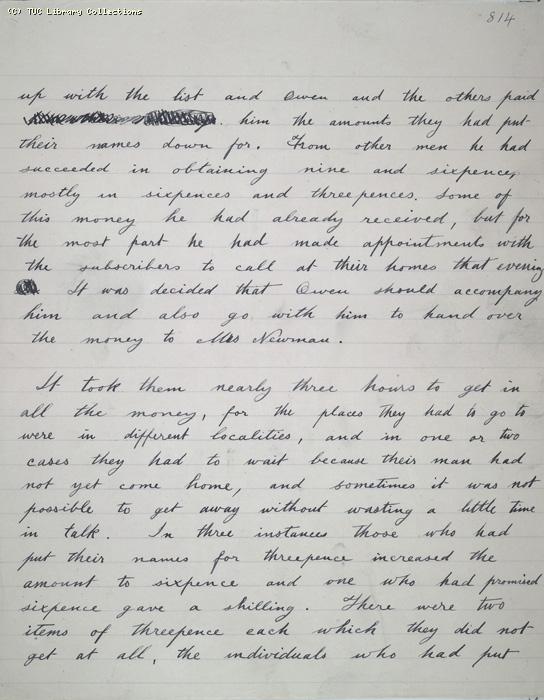 (C) TUC Library Collections
814
up with the list and Owen and the others paid
him the amounts they had put
their names down for. From other men he had
succeeded in obtaining nine and sixpence,
mostly in sixpences and threepences. Some of
this money he had already received, but for
the most part he had made appointments with
the subscribers to call at their homes that evening
It was decided that Owen should accompany
him and also go with him to hand over
the money to Mrs Newman.
It took them nearly three hours to get in
all the money, for the places they had to go to
were in different localities, and in one or two
cases they had to wait because their man had
not yet come home, and sometimes it was not
possible to get away without wasting a little time
in talk. In three instances those who had
put their names for threepence increased the
amount to sixpence and one who had promised
sixpence gave a shilling. There were two
items of threepence each which they did not
get at all, the individuals who had put